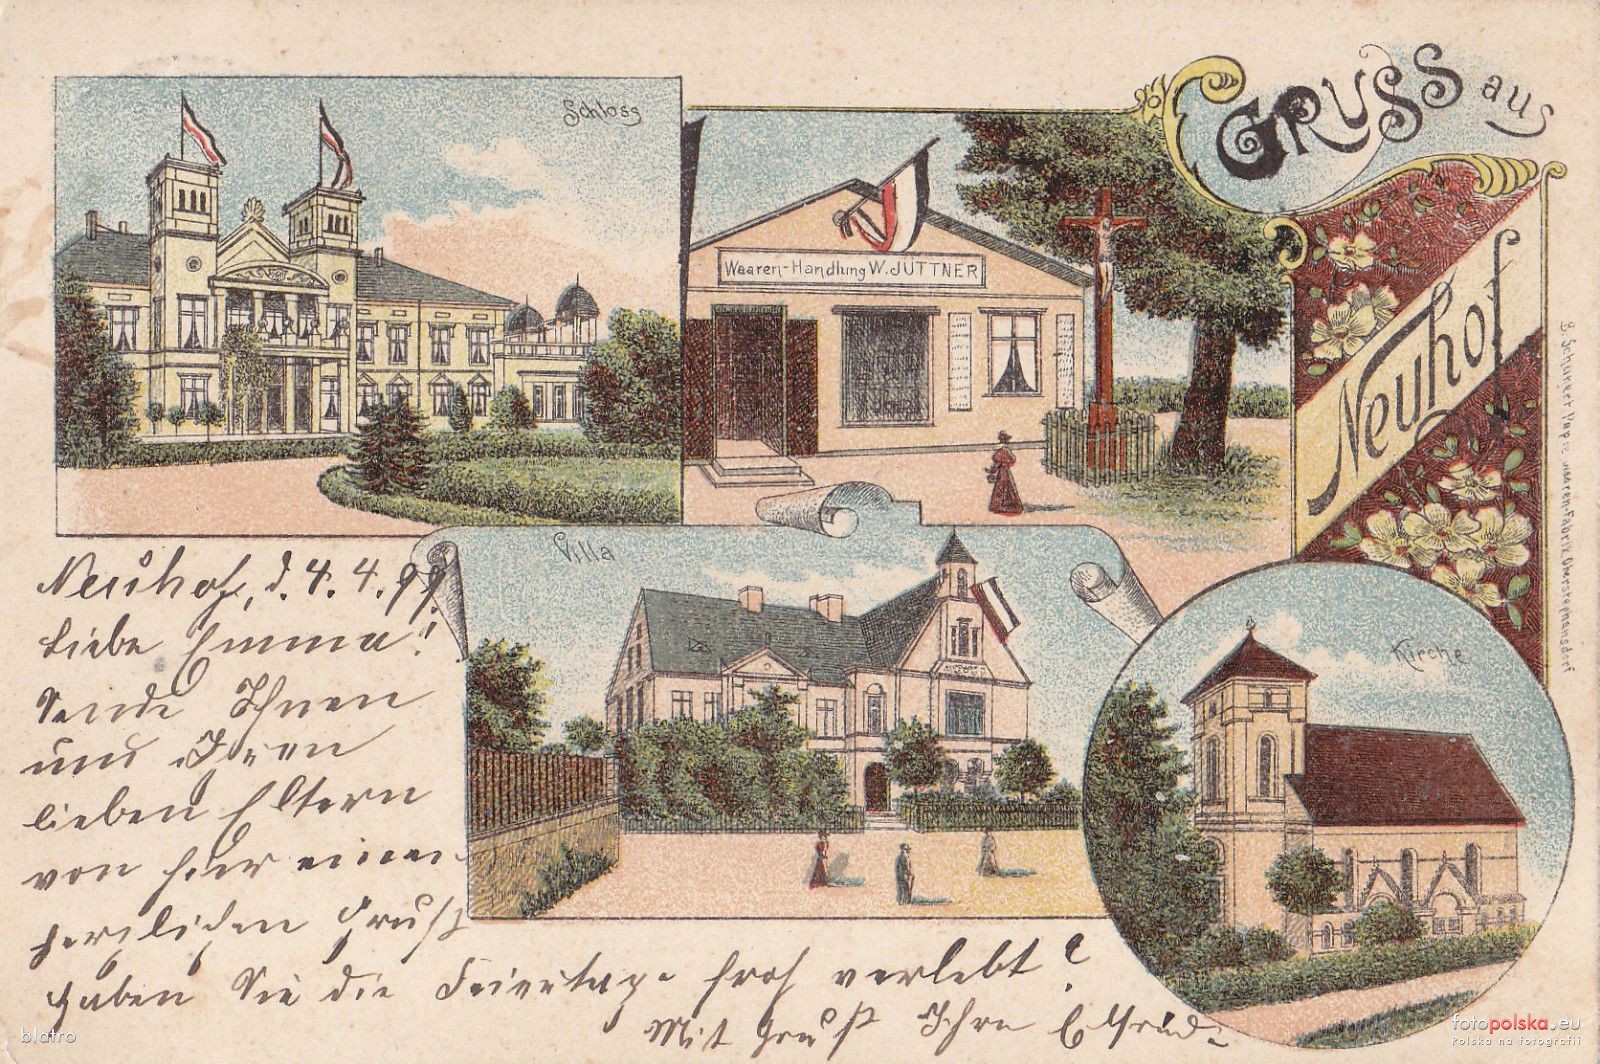 Schloss
Waaren-Handlung W. JÜTTNER
GRUSS aus
Neuhof
Villa
Kirche
Neuhof, d. 4. 4. 99.
Liebe Emma!
Sende Ihnen
und Ihren
lieben Eltern
von hier einen
herzlichen Gruß
Haben Sie die Feiertage froh verlebt?
Mit Gruß Ihre
B. Schunert Papierwaaren-Fabrik Oberstephansdorf
blatro
fotopolska.eu
Polska na fotografii